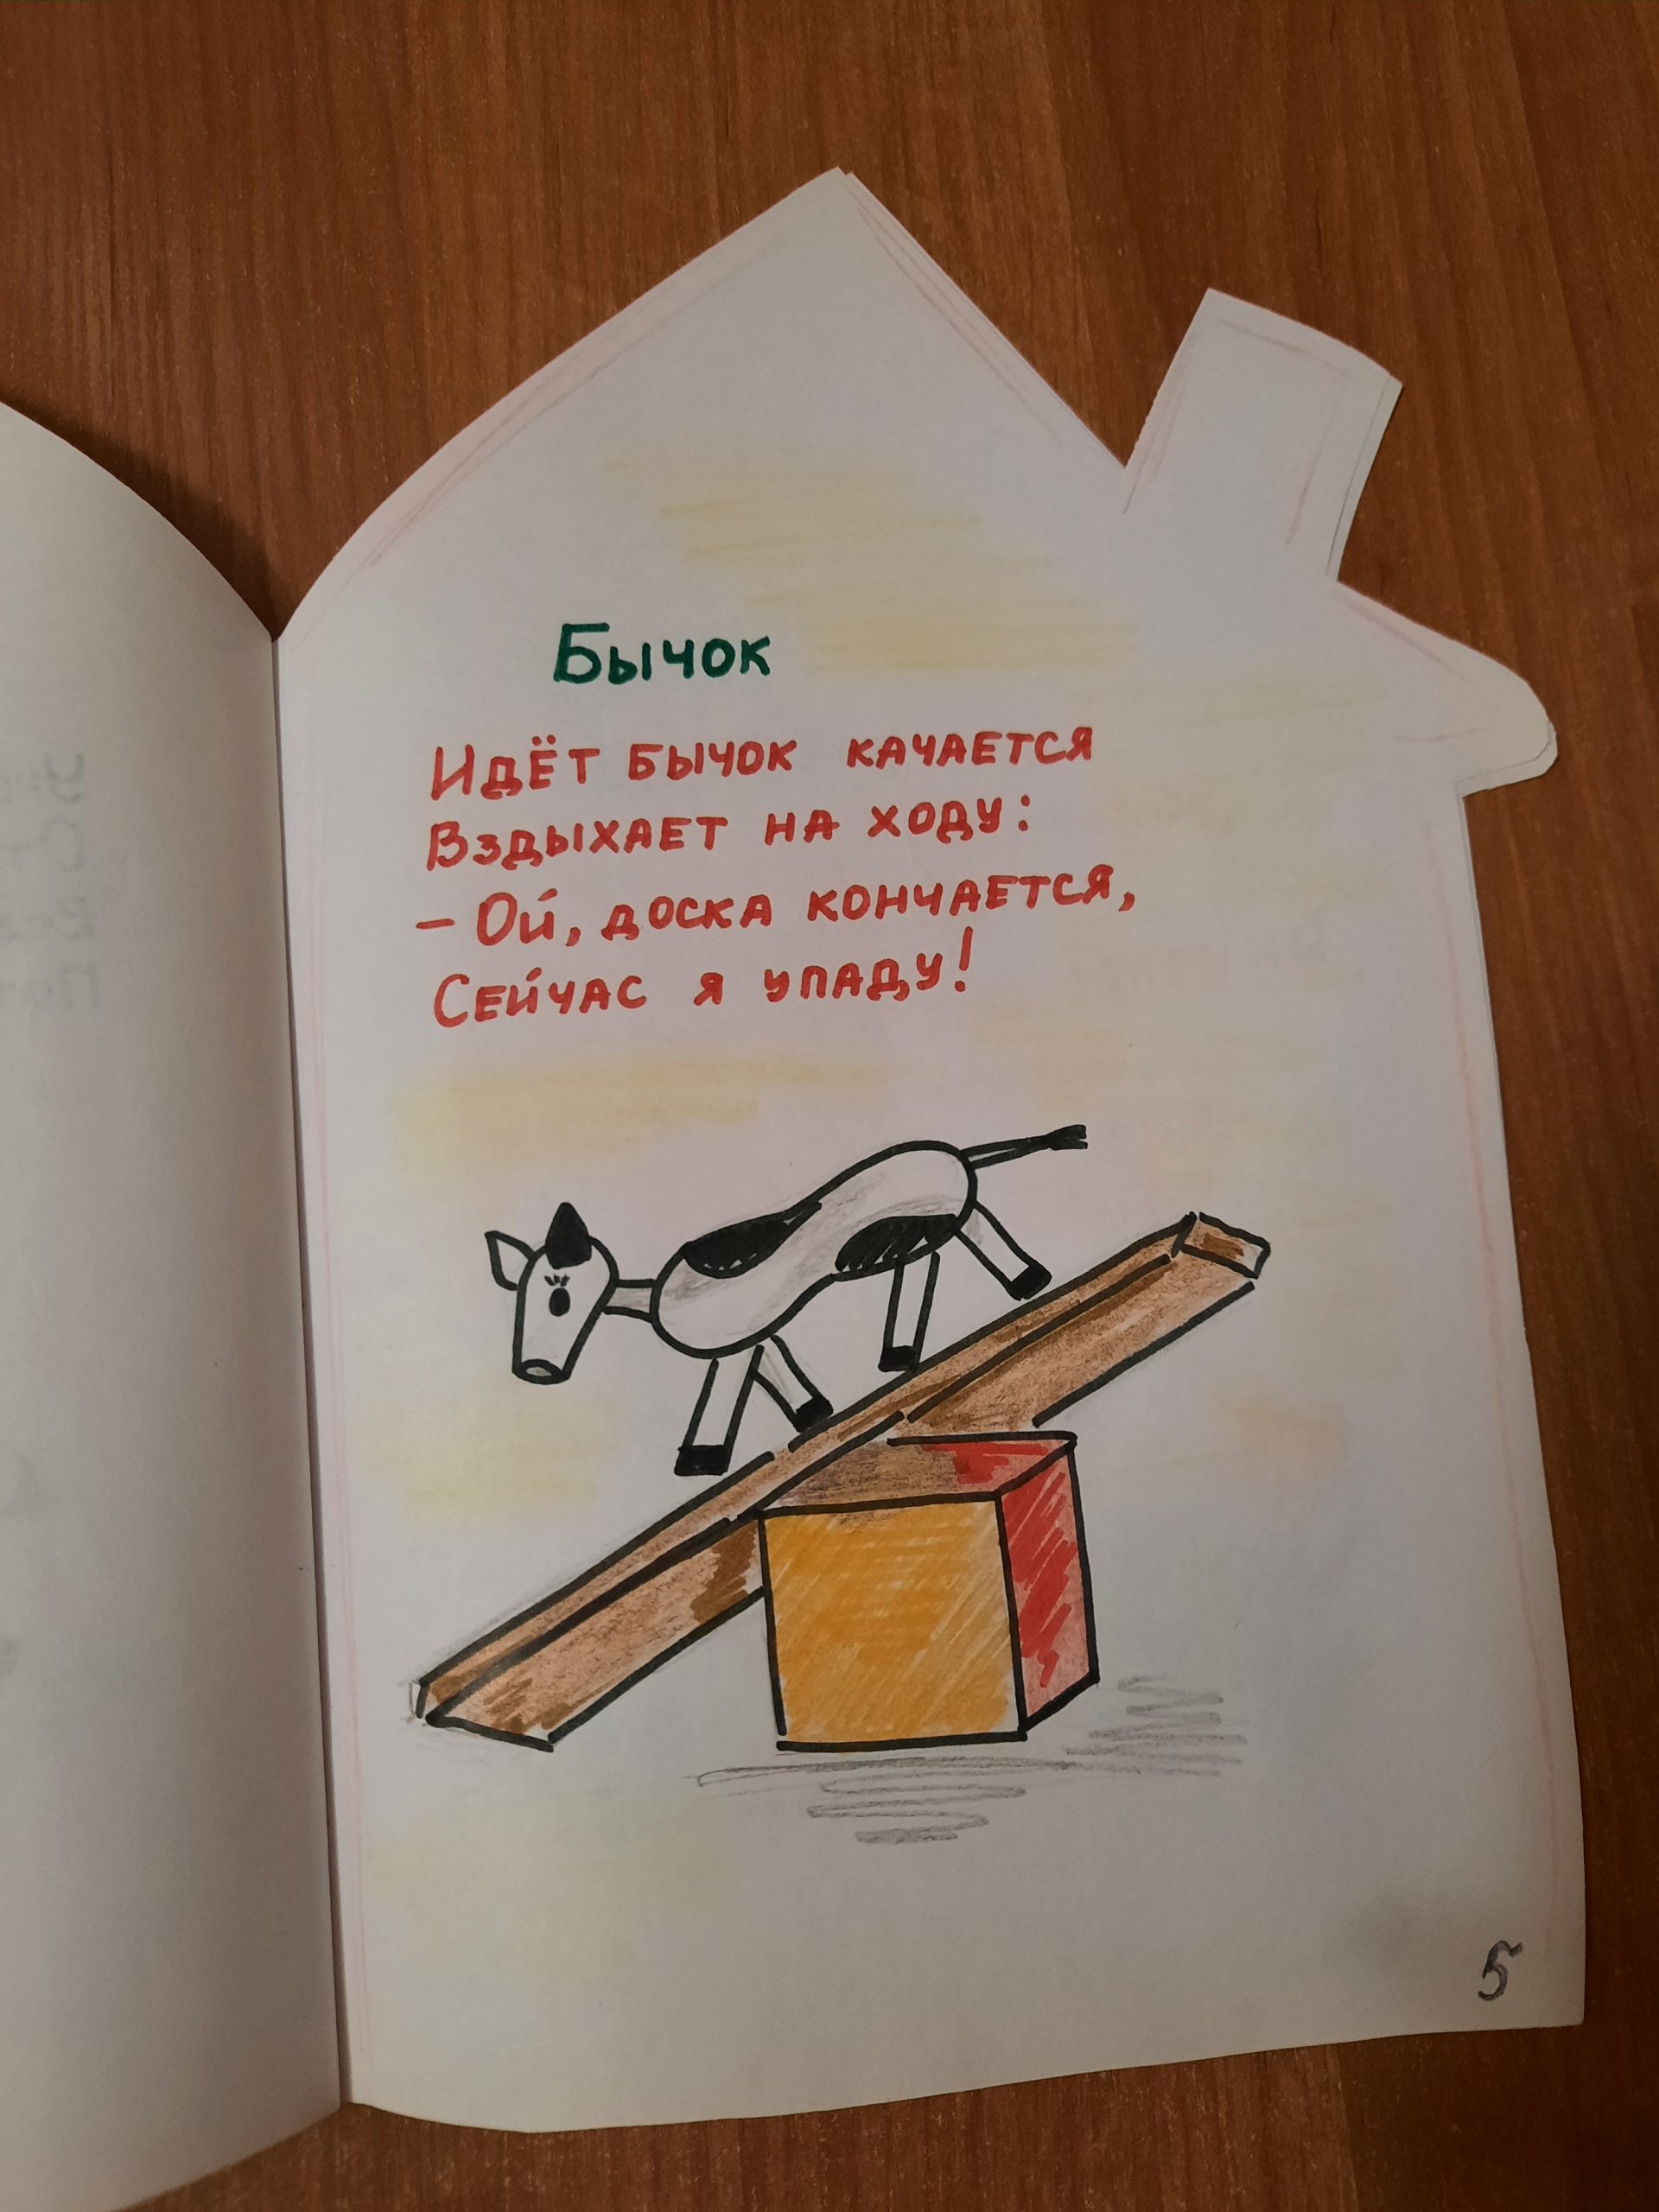 Бычок
Идёт бычок качается
Вздыхает на ходу:
- Ой, доска кончается,
Сейчас я упаду!
5